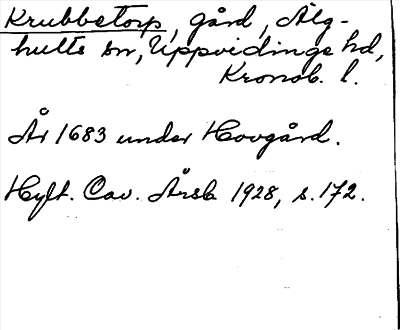 Krubbetorp, gård, Älg-
hults sn, Uppvidinge hd,
Kronob. l.
År 1683 under Hovgård.
Hylt. Cav. Årsb 1928, s. 172.